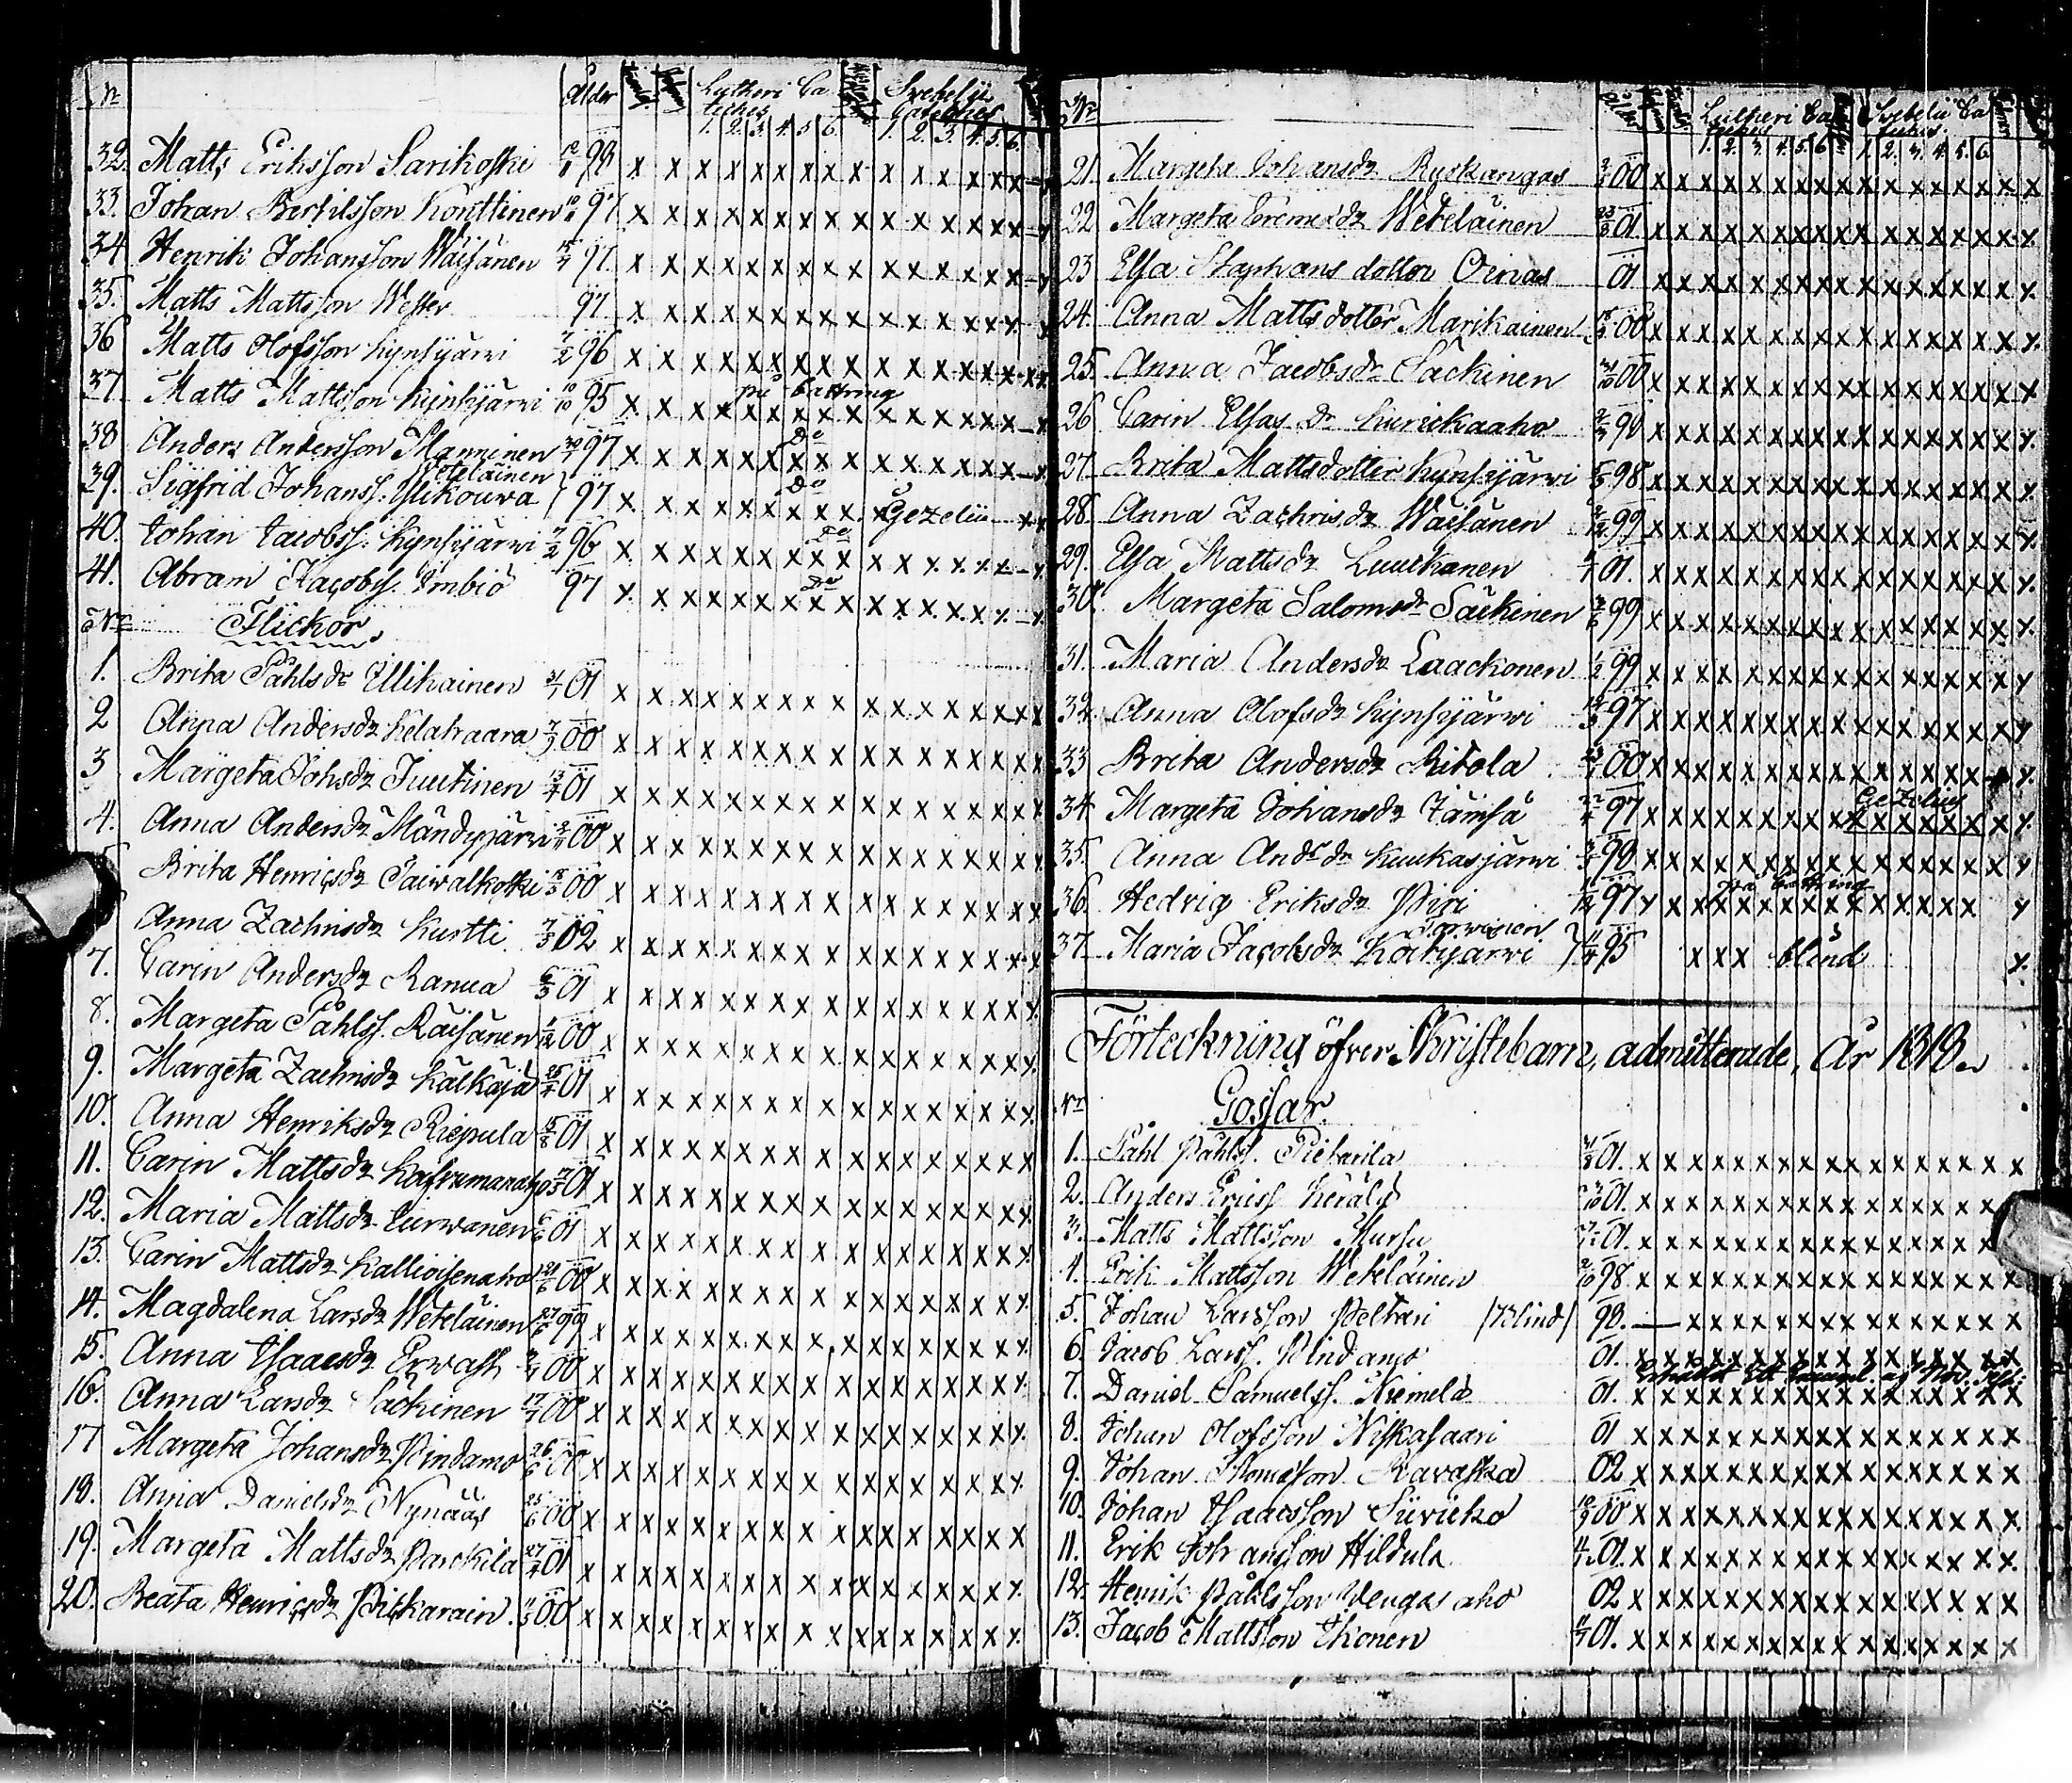 No Ålder Lutheri Ca Svebelii
teches Catechet
1. 2. 3. 4. 5. 6. 1. 2. 3. 4. 5. 6.
32. Matts Eriksson Sarikoski 98 x x x x x x x x x x x x x x
33. Johan Bertilsson Konttinen 97 x x x x x x x x x x x x x x
34 Henrik Johansson Wäisänen 97. x x x x x x x x x x x x x x
35. Matts Mattsson Wester 97. x x x x x x x x x x x x x x
36 Matts Olofsson Kynsijärwi 7/2 96 x x x x x x x x x x x x x x
37. Matts Mattsson Kynsijärwi 10/10 95 x x x x x x x x x x x x x x
på bättring
38 Anders Andersson Manninen 97 x x x x x x x x x x x x x x
Do
Weteläinen
39. Sigfrid Johanss. Ylikouwa 97 x x x x x x x x Gezelii
Do
40. Johan Jacobss. Kynsijärwi 7/2 96 x x x x x x x x x x x x x x
Do
41. Abram Jacobss. Imbiö 97 x x x x x x x x x x x x x x
Do
No Flickor.
1. Brita Påhlsdr Illikainen 01 x x x x x x x x x x x x x x
2 Anna Andersdr Kelahaara 7/3 00 x x x x x x x x x x x x x x
3 Margeta Johsdr Juutinen 13/4 01 x x x x x x x x x x x x x x
4. Anna Andersdr Mändyjärwi 00 x x x x x x x x x x x x x x
Brita Henricsdr Saiwalkoski 00 x x x x x x x x x x x x x x
Anna Zachrisdr Kurtti 02 x x x x x x x x x x x x x x
7. Carin Andersdr Ranua 6/3 01 x x x x x x x x x x x x x x
8. Margeta Påhlss. Räisänen 1/12 00 x x x x x x x x x x x x x x
9. Margeta Zachrisdr Kälkäjä 01 x x x x x x x x x x x x x x
10. Anna Henriksdr Riepula 01 x x x x x x x x x x x x x x
11. Carin Mattsdr 01 x x x x x x x x x x x x x x
12. Maria Mattsdr Turwanen 01 x x x x x x x x x x x x x x
13. Carin Mattsdr Kallioisenaho 00 x x x x x x x x x x x x x x
14. Magdalena Larsdr Weteläinen 99 x x x x x x x x x x x x x x
15. Anna Isaacsdr Erwast 00 x x x x x x x x x x x x x x
16. Anna Larsdr Säckinen 00 x x x x x x x x x x x x x x
17 Margeta Johansdr Pindamo 26/6 00 x x x x x x x x x x x x x x
18. Anna Danielsdr Nynääs 25/6 00 x x x x x x x x x x x x x x
19. Margeta Mattsdr Parckila 27/4 01 x x x x x x x x x x x x x x
20. Beata Henricsdr Pitkarain. 00 x x x x x x x x x x x x x x
No Lutheri Ca Svebelii Ca
teches teches.
1. 2. 3. 4. 5. 6 1. 2. 3. 4. 5. 6.
21. Margeta Johansdr Ruokangas 00 x x x x x x x x x x x x x x x
22 Margeta Gremsdr Weteläinen 01 x x x x x x x x x x x x x x x
23 Elsa Staphans dotter Oinas 01 x x x x x x x x x x x x x x x
24. Anna Matts dotter Marikainen 00 x x x x x x x x x x x x x x x
25. Anna Jacobsdr Säckinen 00 x x x x x x x x x x x x x x x
26 Carin Elias Dr Kurickaaho 98 x x x x x x x x x x x x x x x
27. Brita Mattsdotter Kynsijärwi 98 x x x x x x x x x x x x x x x
28. Anna Zachrisdr Wäisänen 99 x x x x x x x x x x x x x x x
29. Elsa Mattsdr Luuckonen 01. x x x x x x x x x x x x x x x
30. Margeta Salomsdr Säckinen 99 x x x x x x x x x x x x x x x
31. Maria Andersdr Laackonen 1/2 99 x x x x x x x x x x x x x x x
32. Anna Olofsdr Kynsijärwi 97 x x x x x x x x x x x x x x x
33 Brita Andersdr Ritola 00 x x x x x x x x x x x x x x x
Gezelius
34. Margeta Johansdr Jämsä 97 x x x x x x x x x x x x x x x
35. Anna Andrsdr Kuukasjärwi 98 x x x x x x x x x x x x x x x
på bättring
36. Hedvig Eriksdr Piri 97 x x x x x x x x x x x x x x
Sarwinen
37. Maria Jacobsdr Koitijärwi 95 x x x blind x
Förteckning öfver Skriftebarn, admitterade, År 1818.
Nr Gossar.
1. Påhl Påhlss. Pietarila 01. x x x x x x x x x x x x x x x
2. Anders Ericss Kerälä 01. x x x x x x x x x x x x x x x
3. Matts Mattsson Mursu 01. x x x x x x x x x x x x x x
4. Erik Mattsson Weteläinen 98 x x x x x x x x x x x x x x x
5. Johan Larsson Peltari /Blind/ 98. — x x x x x x x x x x x x x
6. Jacob Larss. Pindamo 01. x x x x x x x x x x x x x x x
7. Daniel Samuelss. Niemelä 01. x x x x x x x x x x x x x x x
8. Johan Olofsson Niskasaari 01 x x x x x x x x x x x x x x x
9. Johan Thomasson Ravaska 02 x x x x x x x x x x x x x x x
10. Johan Isaacsson Siivicko 00 x x x x x x x x x x x x x x x
11. Erik Johansson Hildula 01. x x x x x x x x x x x x x x x
12. Henrik Påhlsson Wengas aho 02 x x x x x x x x x x x x x x x
13. Jacob Mattsson Ikonen 01. x x x x x x x x x x x x x x x